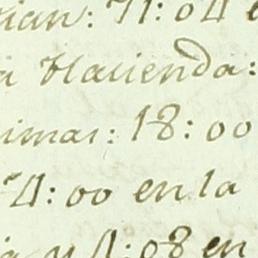 ian: 71: 04
a Hacienda:
imas: 18: 00
4: 00 en la
a y 4: 08 en